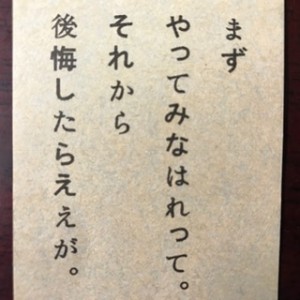 まず
やってみなはれって。
それから
後悔したらええが。